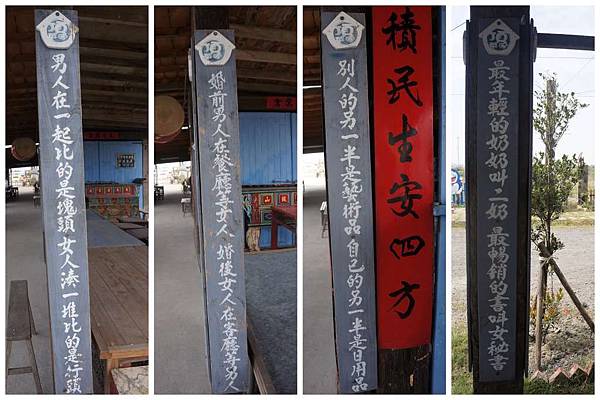 男人在一起比的是塊頭 女人湊一堆比的是行頭
婚前男人在餐廳等女人 婚後女人在客廳等男人
別人的另一半是藝術品 自己的另一半是日用品
積民生安四方
最年輕的奶奶叫二奶 最暢銷的書叫女秘書